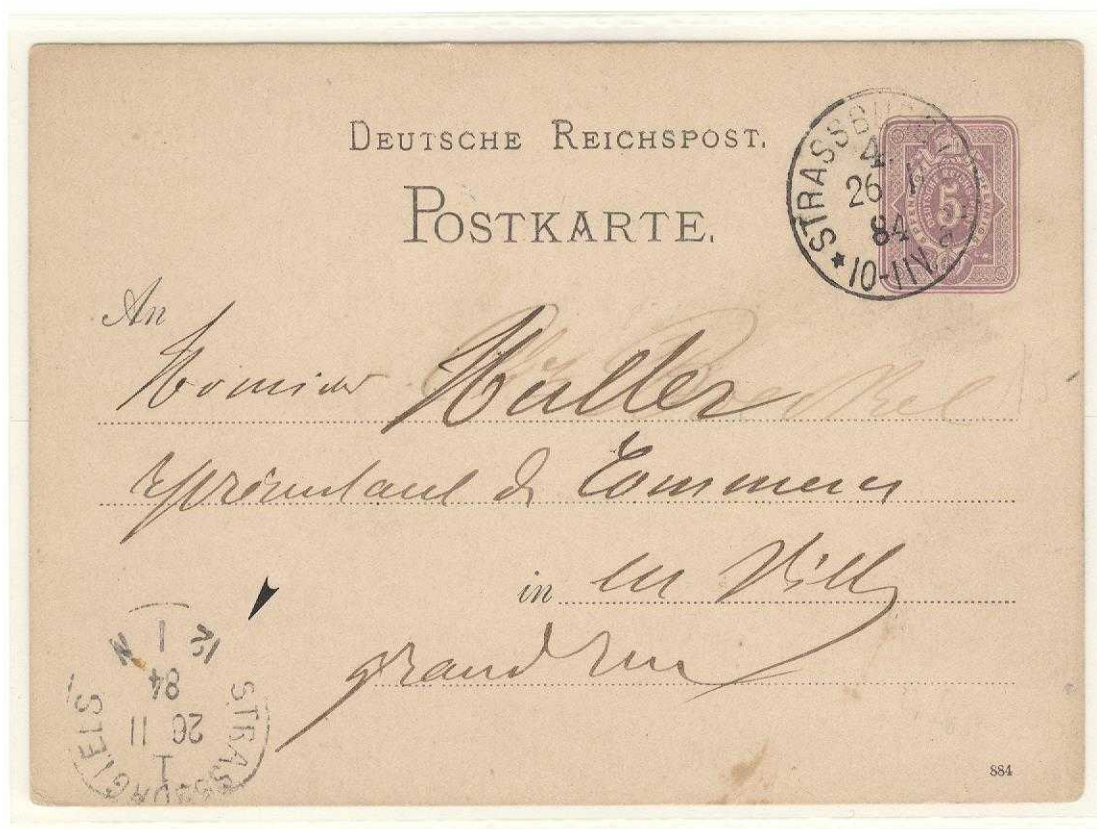 DEUTSCHE REICHSPOST.
POSTKARTE.
STRASSBURG
4
26
84
10-11V
5
An
Monsieur Huller
représentant de Commerce
in en Ville
grand rue
STRASSBURG I. ELS
1
26 11
84
12 1 N
884